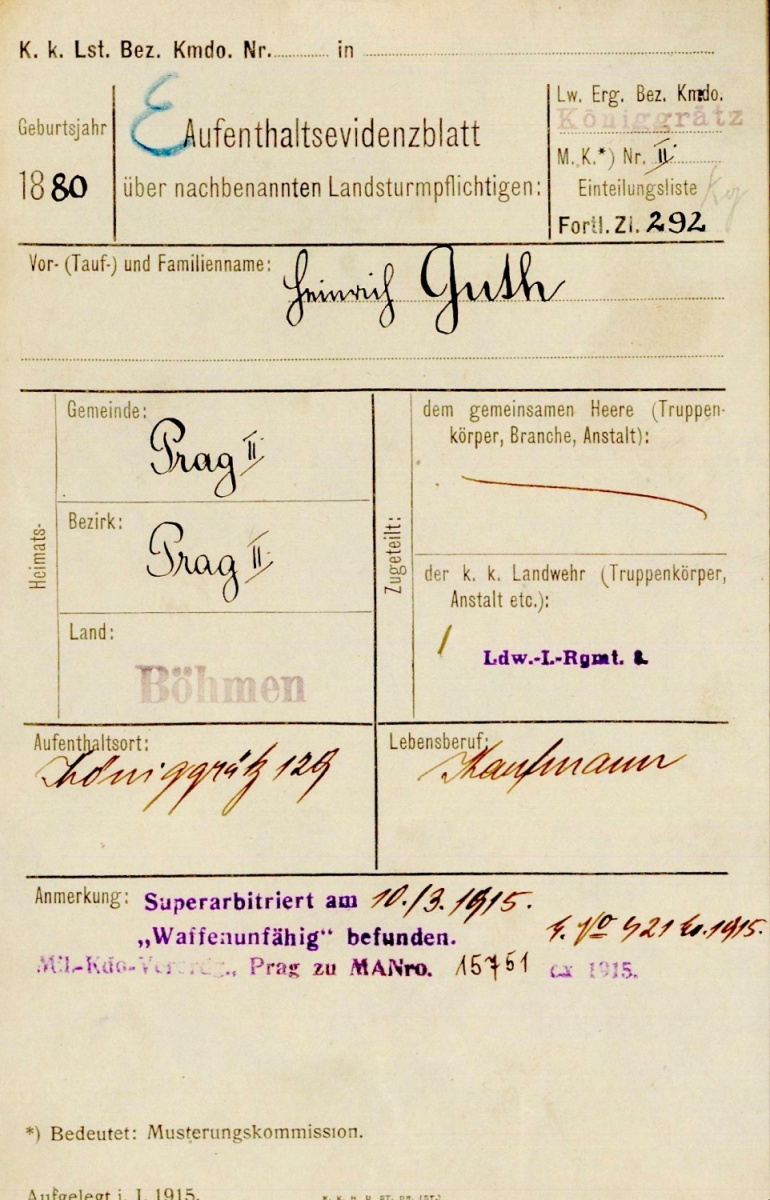 K. k. Lst. Bez. Kmdo. Nr. in
Geburtsjahr
1880
E Aufenthaltsevidenzblatt
über nachbenannten Landsturmpflichtigen:
Lw. Erg. Bez. Kmdo.
Königgrätz
M. K.*) Nr. II.
Einteilungsliste
Fortl. Zl. 292
Vor- (Tauf-) und Familienname: Heinrich Guth
Heimats-
Gemeinde:
Prag II.
Bezirk:
Prag II.
Land:
Böhmen
Zugeteilt:
dem gemeinsamen Heere (Truppen-
körper, Branche, Anstalt):
der k. k. Landwehr (Truppenkörper,
Anstalt etc.):
Ldw.-I.-Rgmt.
Aufenthaltsort:
Königgrätz 129
Lebensberuf:
Kaufmann
Anmerkung: Superarbitriert am 10./3. 1915.
„Waffenunfähig“ befunden.
421 1915.
Mil.-Kdo- Prag zu MANro. 15751 ex 1915.
*) Bedeutet: Musterungskommission.
Aufgelegt i. J. 1915.